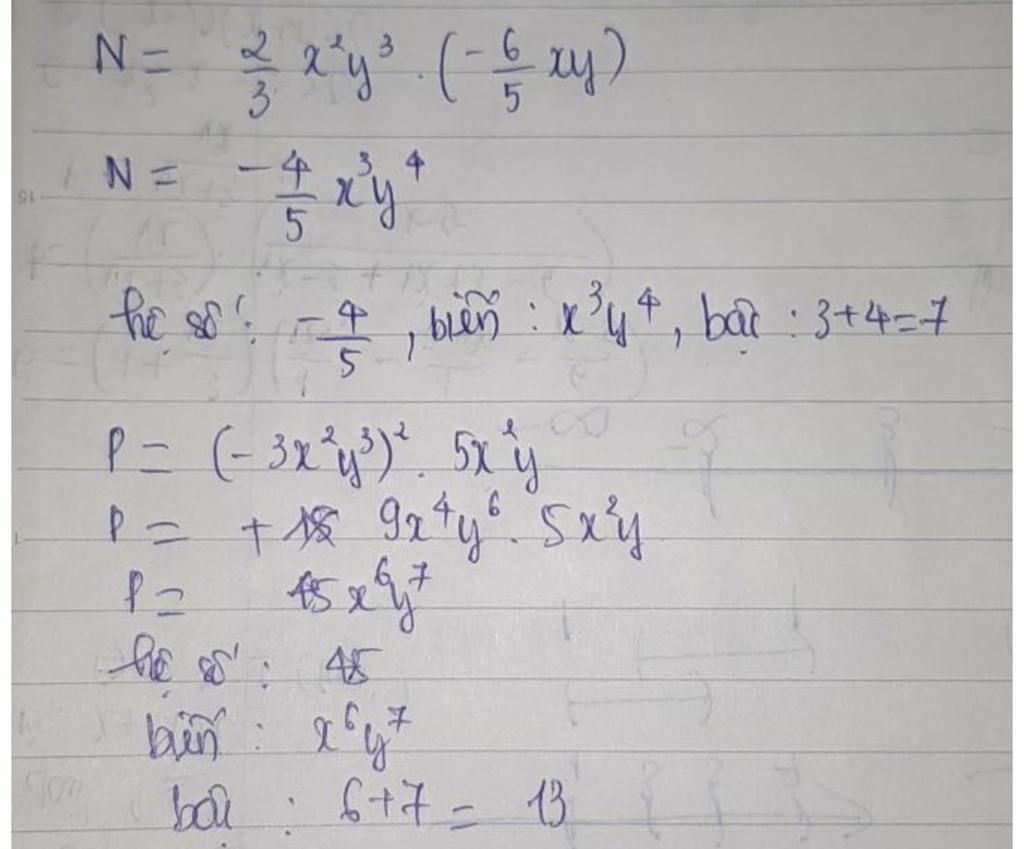 N = 2/3 x²y³ . (-6/5 xy)
N = -4/5 x³y⁴
hệ số : -4/5 , biến : x³y⁴ , bậc : 3+4=7
P = (-3x²y³)² . 5x²y
P = + 9x⁴y⁶ . 5x²y
P = 45x⁶y⁷
hệ số : 45
biến : x⁶y⁷
bậc : 6+7 = 13